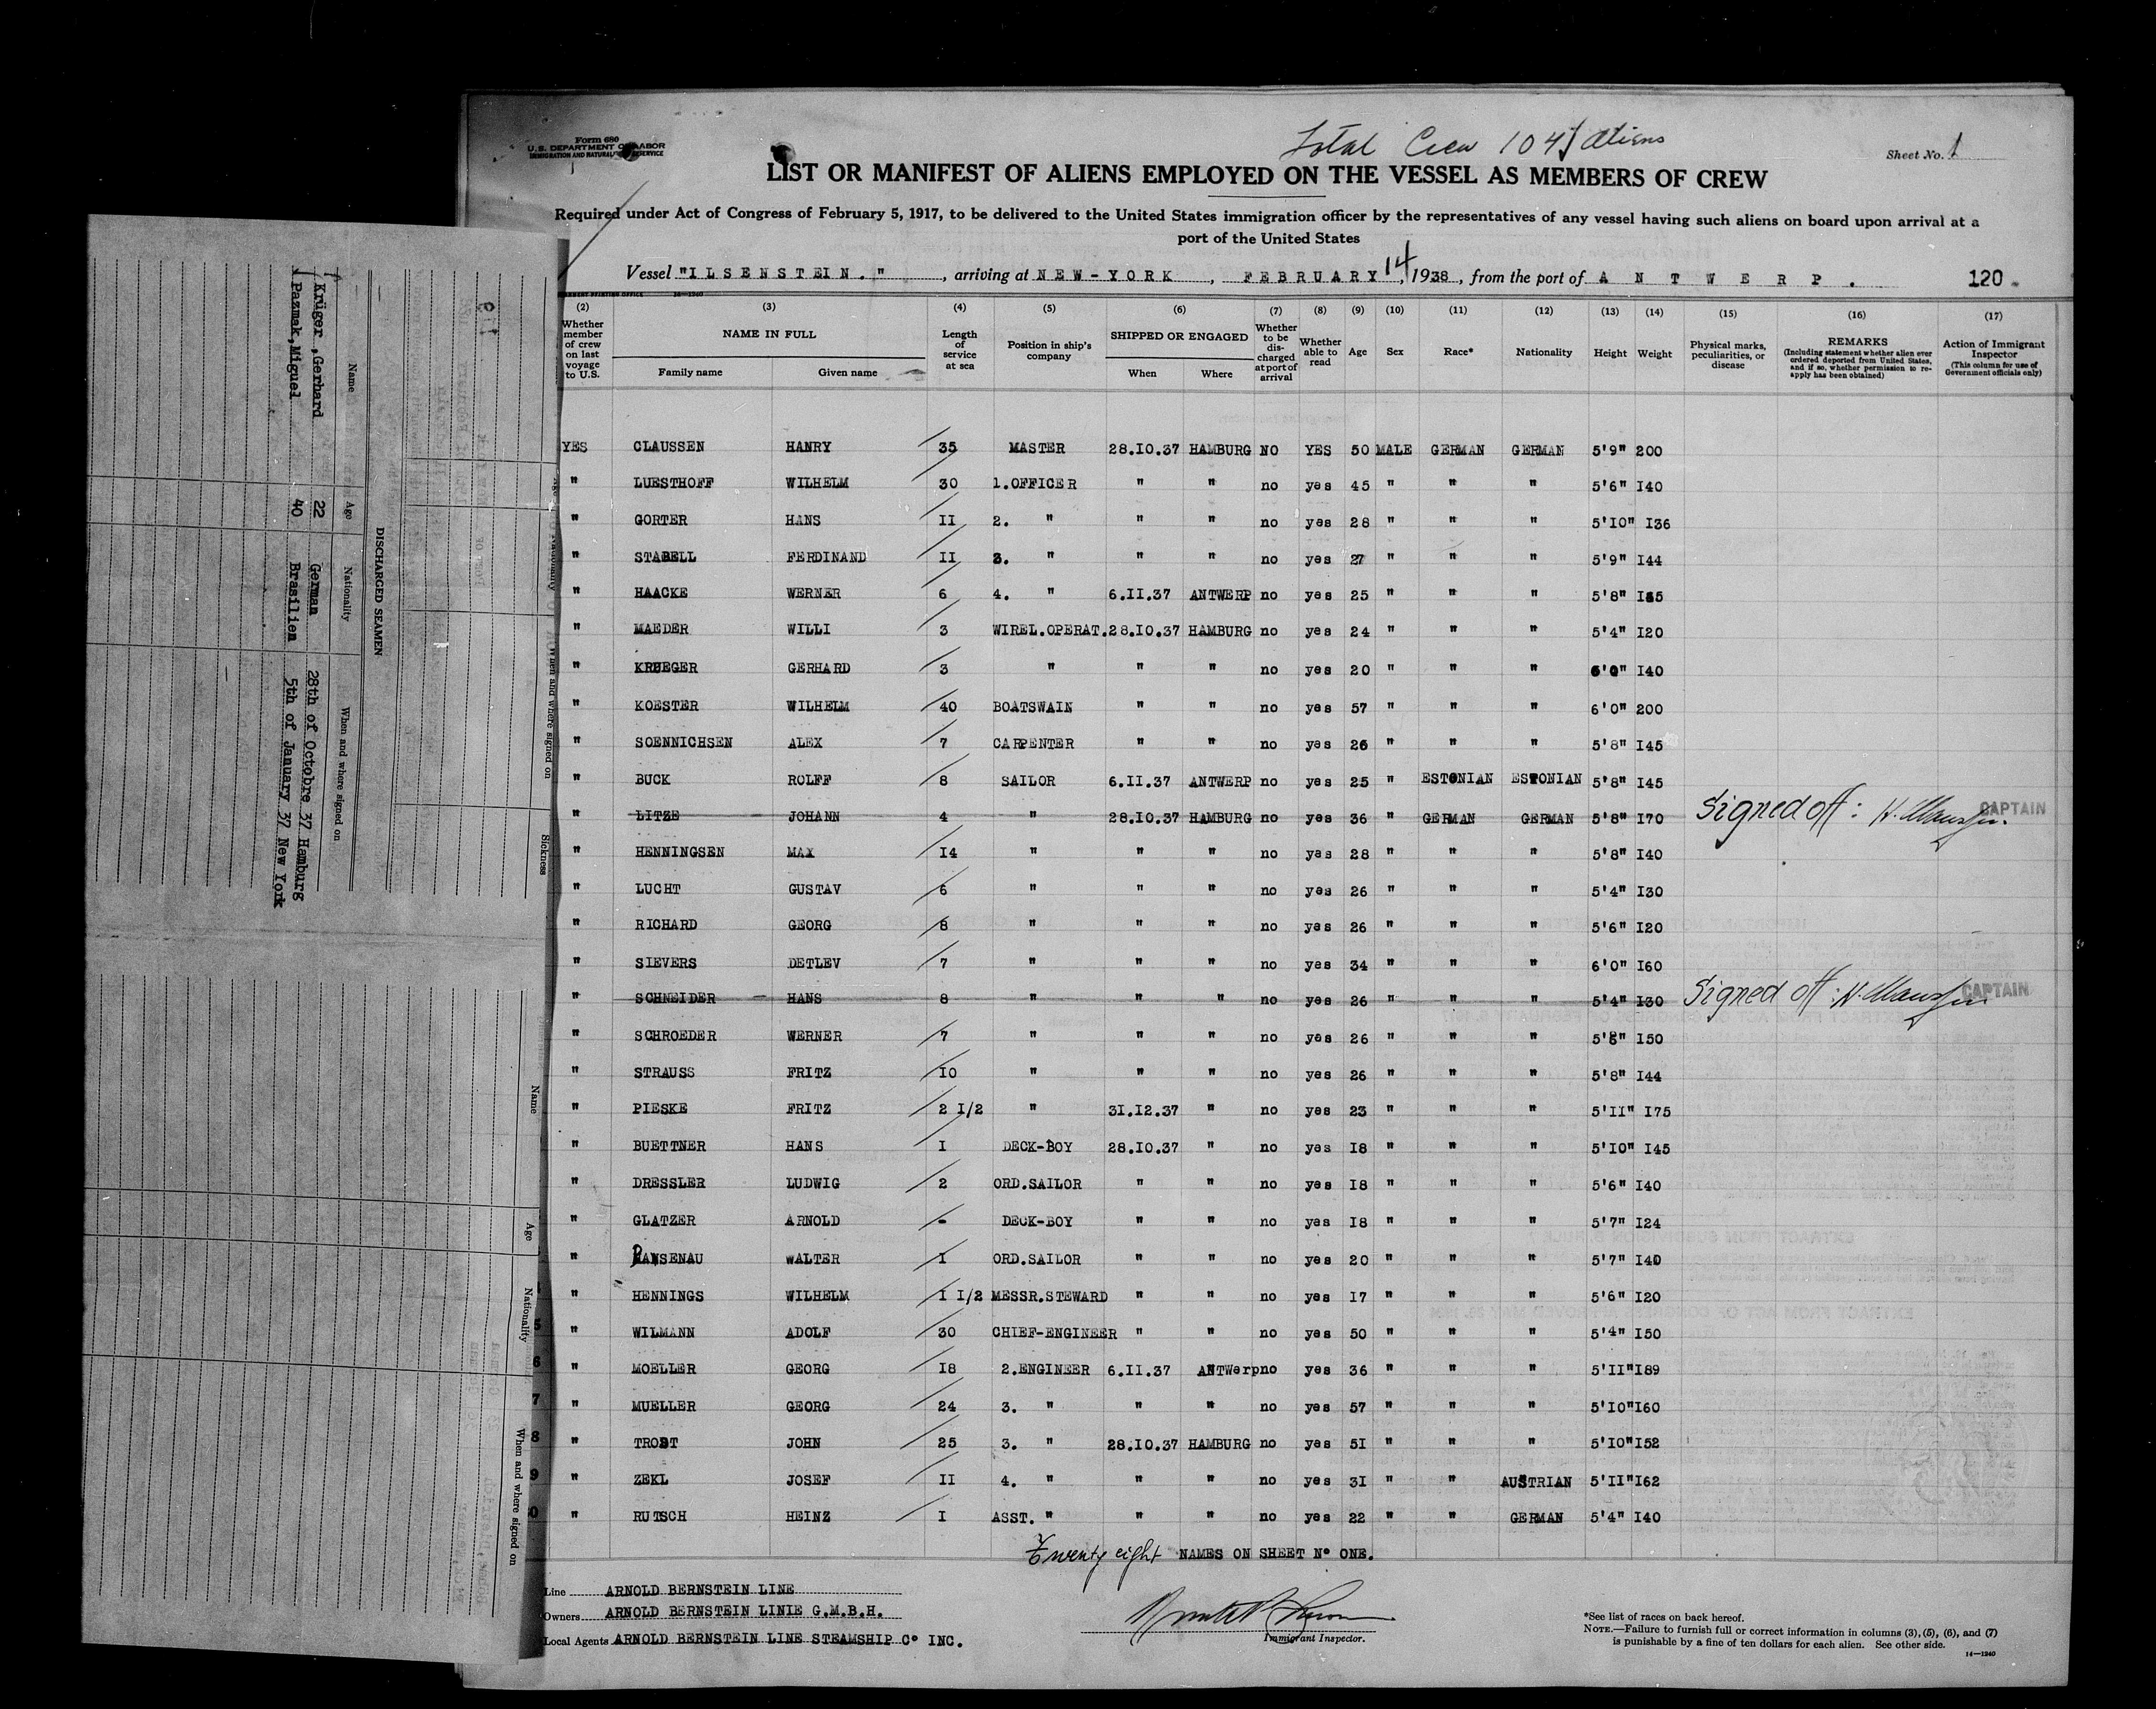 Form 680
U.S. DEPARTMENT OF LABOR
IMMIGRATION AND NATURALIZATION SERVICE
Total Crew 104 aliens
Sheet No. 1
LIST OR MANIFEST OF ALIENS EMPLOYED ON THE VESSEL AS MEMBERS OF CREW
Required under Act of Congress of February 5, 1917, to be delivered to the United States immigration officer by the representatives of any vessel having such aliens on board upon arrival at a
port of the United States
Vessel "ILSENSTEIN.", arriving at NEW-YORK, FEBRUARY 14, 1938, from the port of ANTWERP. 120
(2) (3) (4) (5) (6) (7) (8) (9) (10) (11) (12) (13) (14) (15) (16) (17)
Whether member of crew on last voyage to U.S. NAME IN FULL Family name Given name Length of service at sea Position in ship's company SHIPPED OR ENGAGED When Where Whether to be discharged at port of arrival Whether able to read Age Sex Race* Nationality Height Weight Physical marks, peculiarities, or disease REMARKS (Including statement whether alien ever ordered deported from United States, and if so, whether permission to re-apply has been obtained) Action of Immigrant Inspector (This column for use of Government officials only)
YES CLAUSSEN HANRY 35 MASTER 28.10.37 HAMBURG NO YES 50 MALE GERMAN GERMAN 5'9" 200
" LUESTHOFF WILHELM 30 1.OFFICER " " no yes 45 " " " 5'6" I40
" GORTER HANS II 2. " " " no yes 28 " " " 5'IO" I36
" STABELL FERDINAND II 3. " " " no yes 27 " " " 5'9" I44
" HAACKE WERNER 6 4. " 6.II.37 ANTWERP no yes 25 " " " 5'8"
" MAEDER WILLI 3 WIREL.OPERAT. 28.IO.37 HAMBURG no yes 24 " " " 5'4" I20
" KRUEGER GERHARD 3 " " " no yes 20 " " " 6'0" I40
" KOESTER WILHELM 40 BOATSWAIN " " no yes 57 " " " 6'0" 200
" SOENNICHSEN ALEX 7 CARPENTER " " no yes 26 " " " 5'8" I45
" BUCK ROLFF 8 SAILOR 6.II.37 ANTWERP no yes 25 " ESTONIAN ESTONIAN 5'8" I45
" LITZE JOHANN 4 " 28.IO.37 HAMBURG no yes 36 " GERMAN GERMAN 5'8" I70 Signed off: CAPTAIN
" HENNINGSEN MAX I4 " " " no yes 28 " " " 5'8" I40
" LUCHT GUSTAV 6 " " " no yes 26 " " " 5'4" I30
" RICHARD GEORG 8 " " " no yes 26 " " " 5'6" I20
" SIEVERS DETLEV 7 " " " no yes 34 " " " 6'0" I60
" SCHNEIDER - HANS 8 " " " no yes 26 " " " 5'4" I30 Signed off: CAPTAIN
" SCHROEDER WERNER 7 " " " no yes 26 " " " 5'8" I50
" STRAUSS FRITZ IO " " " no yes 26 " " " 5'8" I44
" PIESKE FRITZ 2 I/2 " 3I.I2.37 " no yes 23 " " " 5'II" I75
" BUETTNER HANS I DECK-BOY 28.IO.37 " no yes I8 " " " 5'IO" I45
" DRESSLER LUDWIG 2 ORD.SAILOR " " no yes I8 " " " 5'6" I40
" GLATZER ARNOLD - DECK-BOY " " no yes I8 " " " 5'7" I24
" WALTER I ORD.SAILOR " " no yes 20 " " " 5'7" I40
" HENNINGS WILHELM I I/2 MESSR.STEWARD " " no yes I7 " " " 5'6" I20
5 " WILMANN ADOLF 30 CHIEF-ENGINEER " " no yes 50 " " " 5'4" I50
6 " MOELLER GEORG I8 2.ENGINEER 6.II.37 ANTWerp no yes 36 " " " 5'II" I89
7 " MUELLER GEORG 24 3. " " " no yes 57 " " " 5'IO" I60
8 " TROST JOHN 25 3. " 28.IO.37 HAMBURG no yes 5I " " " 5'IO" I52
9 " ZEKL JOSEF II 4. " " " no yes 3I " " AUSTRIAN 5'II" I62
0 " RUTSCH HEINZ I ASST. " " " no yes 22 " " GERMAN 5'4" I40
Twenty eight NAMES ON SHEET No ONE.
Line ARNOLD BERNSTEIN LINE
Owners ARNOLD BERNSTEIN LINIE G.M.B.H.
Local Agents ARNOLD BERNSTEIN LINE STEAMSHIP Co INC.
Immigrant Inspector.
*See list of races on back hereof.
NOTE.—Failure to furnish full or correct information in columns (3), (5), (6), and (7)
is punishable by a fine of ten dollars for each alien. See other side.
14—1240
DISCHARGED SEAMEN
Name Age Nationality When and where signed on
Krüger ,Gerhard 22 German 28th of Octobre 37 Hamburg
Pazmak,Miguel 40 Brasilien 5th of January 37 New York
Sickness
Name Age Nationality When and where signed on